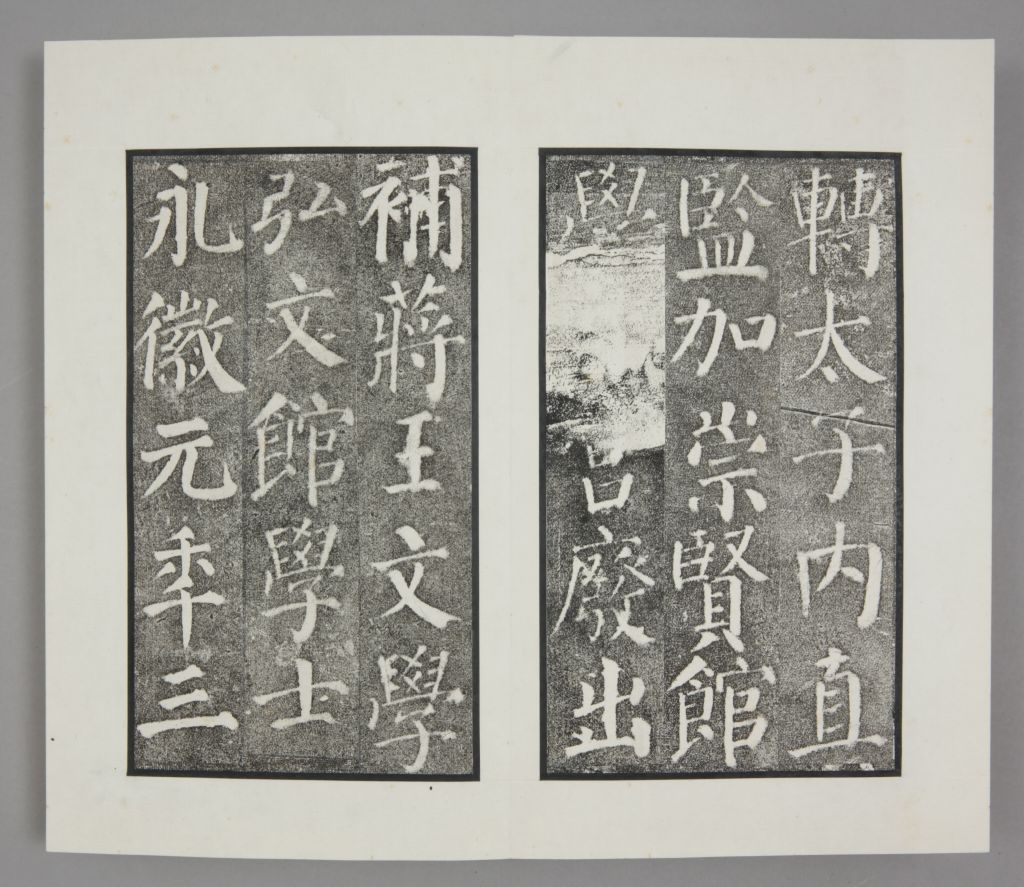 轉太子内直
監加崇賢館
學廢出
補蔣王文學
弘文館學士
永徽元年三